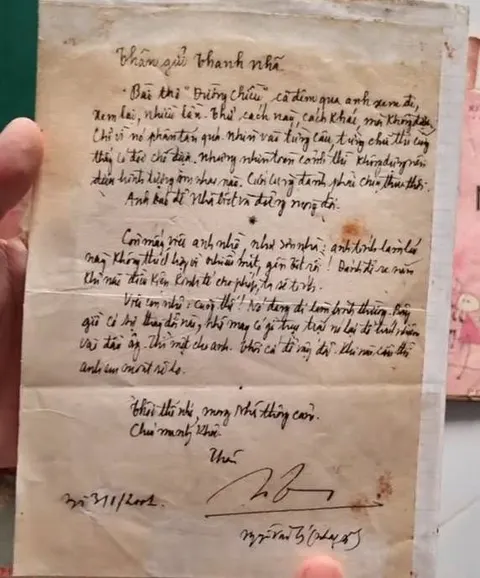 Thân gửi Thanh Nhã
Bài thơ "Đường chiều", cả đêm qua anh xem đi,
xem lại, nhiều lần. Thử cách này, cách khác, mà không được.
Chỉ vì nó phân tán quá. Nhìn vào từng câu, từng chữ thì cũng
thấy có đôi chỗ được. Nhưng nhìn toàn cảnh thì không dựng nên
được hình tượng âm nhạc nào. Cuối cùng đành phải chịu thua thôi.
Anh báo để Nhã biết và đừng mong đợi.
Còn mấy việc anh nhờ, như sửa nhà: anh tính làm lúc
này không thích hợp vì nhiều mặt, gần Tết rồi! Đành để ra năm
khi nào điều kiện kinh tế cho phép, ta sẽ tính.
Việc con nhỏ: cũng thế! Nó đang đi làm bình thường. Bây
giờ có sự thay đổi này, nhỡ may có gì trục trặc nó lại đổ trách nhiệm
vào đầu ấy. Thì mệt cho anh. Thôi cứ để vậy đã. Khi nào cần thì
anh em mình sẽ lo.
Thôi thế nhé, mong Nhã thông cảm.
Chúc mạnh khỏe.
Thân
3/1/2002.